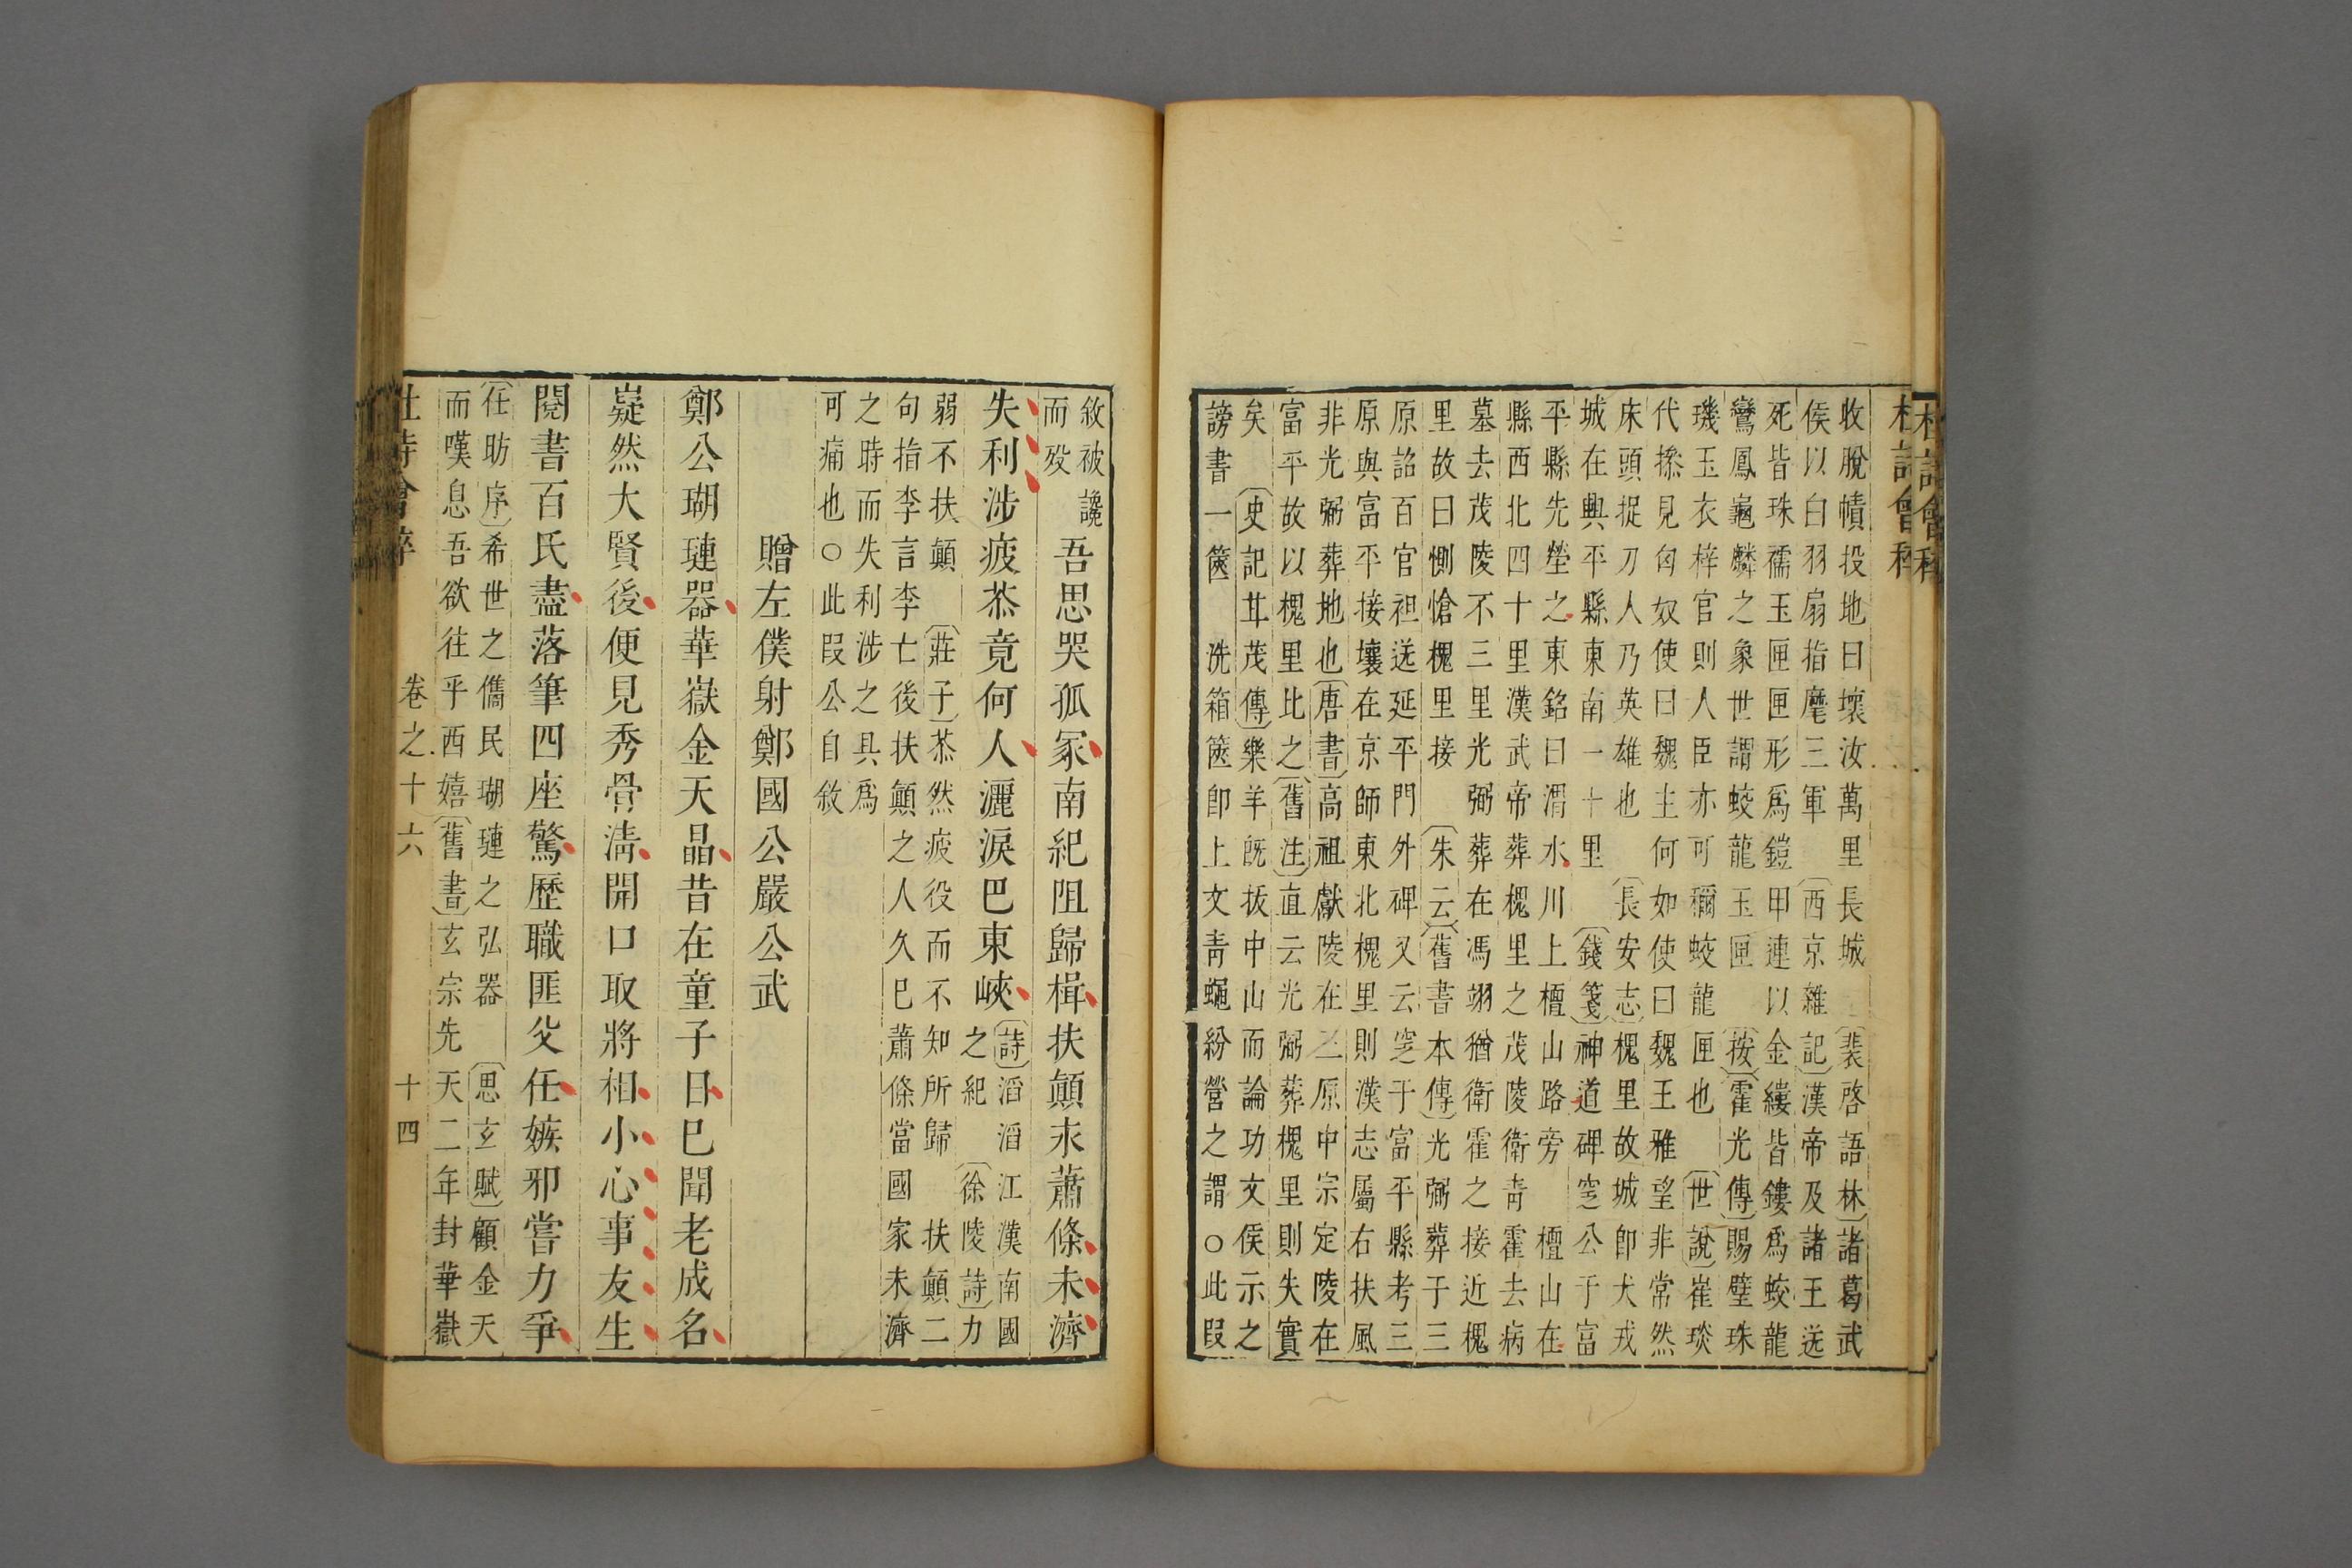 杜詩會稡
收脫幘投地曰壞汝萬里長城 〔裴啓語林〕諸葛武
侯以白羽扇指麾三軍 〔西京雜記〕漢帝及諸王送
死皆珠襦玉匣匣形爲鎧甲連以金縷皆鏤爲蛟龍
鸞鳳龜麟之象世謂蛟龍玉匣 〔按〕〔霍光傳〕賜璧珠
璣玉衣梓官則人臣亦可稱蛟龍匣也 〔世說〕崔琰
代操見匈奴使曰魏主何如使曰魏王雅望非常然
床頭捉刀人乃英雄也 〔長安志〕槐里故城卽犬戎
城在興平縣東南一十里 〔錢箋〕神道碑窆公于富
平縣先塋之東銘曰渭水川上檀山路旁 檀山在
縣西北四十里漢武帝葬槐里之茂陵衛青霍去病
墓去茂陵不三里光弼葬在馮翊猶衛霍之接近槐
里故曰惻愴槐里接 〔朱云〕〔舊書本傳〕光弼葬于三
原詔百官袒送延平門外碑又云窆于富平縣考三
原與富平接壤在京師東北槐里則漢志屬右扶風
非光弼葬地也〔唐書〕高祖獻陵在三原中宗定陵在
富平故以槐里比之〔舊注〕直云光弼葬槐里則失實
矣 〔史記甘茂傳〕樂羊旣拔中山而論功文侯示之
謗書一篋 洗箱篋卽上文青蠅紛營之謂○此段
敘被讒
而歿
吾思哭孤冢南紀阻歸楫扶顛永蕭條未濟
失利涉疲苶竟何人灑淚巴東峽
〔詩〕滔滔江漢南國
之紀 〔徐陵詩〕力
弱不扶顛 〔莊子〕苶然疲役而不知所歸 扶顛二
句指李言李亡後扶顛之人久已蕭條當國家未濟
之時而失利涉之具爲
可痛也○此段公自敘
贈左僕射鄭國公嚴公武
鄭公瑚璉器華嶽金天晶昔在童子日已聞老成名
嶷然大賢後便見秀骨淸開口取將相小心事友生
閱書百氏盡落筆四座驚歷職匪父任嫉邪嘗力爭
〔任昉序〕希世之儁民瑚璉之弘器 〔思玄賦〕顧金天
而嘆息吾欲往乎西嬉〔舊書〕玄宗先天二年封華嶽
杜詩會稡 卷之十六 十四